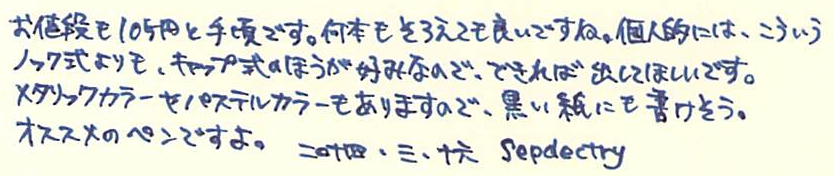 お値段も105円と手頃です。何本もそろえても良いですね。個人的には、こういう
ノック式よりも、キャップ式のほうが好みなので、できれば出してほしいです。
メタリックカラーやパステルカラーもありますので、黒い紙にも書けそう。
オススメのペンですよ。 二〇十四・三・十六 Sepdectry